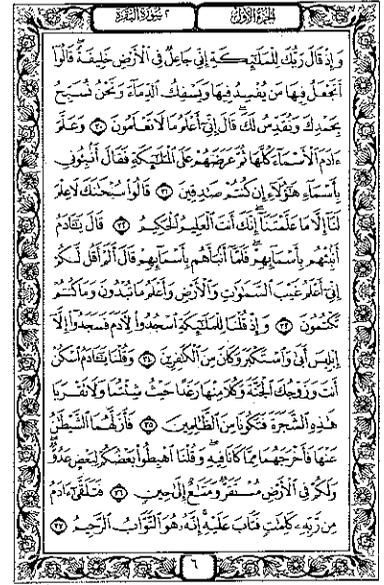 الجزء الأول ٢ سورة البقرة
وَإِذْ قَالَ رَبُّكَ لِلْمَلَٰٓئِكَةِ إِنِّى جَاعِلٌ فِى ٱلْأَرْضِ خَلِيفَةً ۖ قَالُوٓا۟
أَتَجْعَلُ فِيهَا مَن يُفْسِدُ فِيهَا وَيَسْفِكُ ٱلدِّمَآءَ وَنَحْنُ نُسَبِّحُ
بِحَمْدِكَ وَنُقَدِّسُ لَكَ ۖ قَالَ إِنِّىٓ أَعْلَمُ مَا لَا تَعْلَمُونَ ٣٠ وَعَلَّمَ
ءَادَمَ ٱلْأَسْمَآءَ كُلَّهَا ثُمَّ عَرَضَهُمْ عَلَى ٱلْمَلَٰٓئِكَةِ فَقَالَ أَنۢبِـُٔونِى
بِأَسْمَآءِ هَٰٓؤُلَآءِ إِن كُنتُمْ صَٰدِقِينَ ٣١ قَالُوا۟ سُبْحَٰنَكَ لَا عِلْمَ
لَنَآ إِلَّا مَا عَلَّمْتَنَآ ۖ إِنَّكَ أَنتَ ٱلْعَلِيمُ ٱلْحَكِيمُ ٣٢ قَالَ يَٰٓـَٔادَمُ
أَنۢبِئْهُم بِأَسْمَآئِهِمْ ۖ فَلَمَّآ أَنۢبَأَهُم بِأَسْمَآئِهِمْ قَالَ أَلَمْ أَقُل لَّكُمْ
إِنِّىٓ أَعْلَمُ غَيْبَ ٱلسَّمَٰوَٰتِ وَٱلْأَرْضِ وَأَعْلَمُ مَا تُبْدُونَ وَمَا كُنتُمْ
تَكْتُمُونَ ٣٣ وَإِذْ قُلْنَا لِلْمَلَٰٓئِكَةِ ٱسْجُدُوا۟ لِـَٔادَمَ فَسَجَدُوٓا۟ إِلَّآ
إِبْلِيسَ أَبَىٰ وَٱسْتَكْبَرَ وَكَانَ مِنَ ٱلْكَٰفِرِينَ ٣٤ وَقُلْنَا يَٰٓـَٔادَمُ ٱسْكُنْ
أَنتَ وَزَوْجُكَ ٱلْجَنَّةَ وَكُلَا مِنْهَا رَغَدًا حَيْثُ شِئْتُمَا وَلَا تَقْرَبَا
هَٰذِهِ ٱلشَّجَرَةَ فَتَكُونَا مِنَ ٱلظَّٰلِمِينَ ٣٥ فَأَزَلَّهُمَا ٱلشَّيْطَٰنُ
عَنْهَا فَأَخْرَجَهُمَا مِمَّا كَانَا فِيهِ ۖ وَقُلْنَا ٱهْبِطُوا۟ بَعْضُكُمْ لِبَعْضٍ عَدُوٌّ ۖ
وَلَكُمْ فِى ٱلْأَرْضِ مُسْتَقَرٌّ وَمَتَٰعٌ إِلَىٰ حِينٍ ٣٦ فَتَلَقَّىٰٓ ءَادَمُ
مِن رَّبِّهِۦ كَلِمَٰتٍ فَتَابَ عَلَيْهِ ۚ إِنَّهُۥ هُوَ ٱلتَّوَّابُ ٱلرَّحِيمُ ٣٧
٦